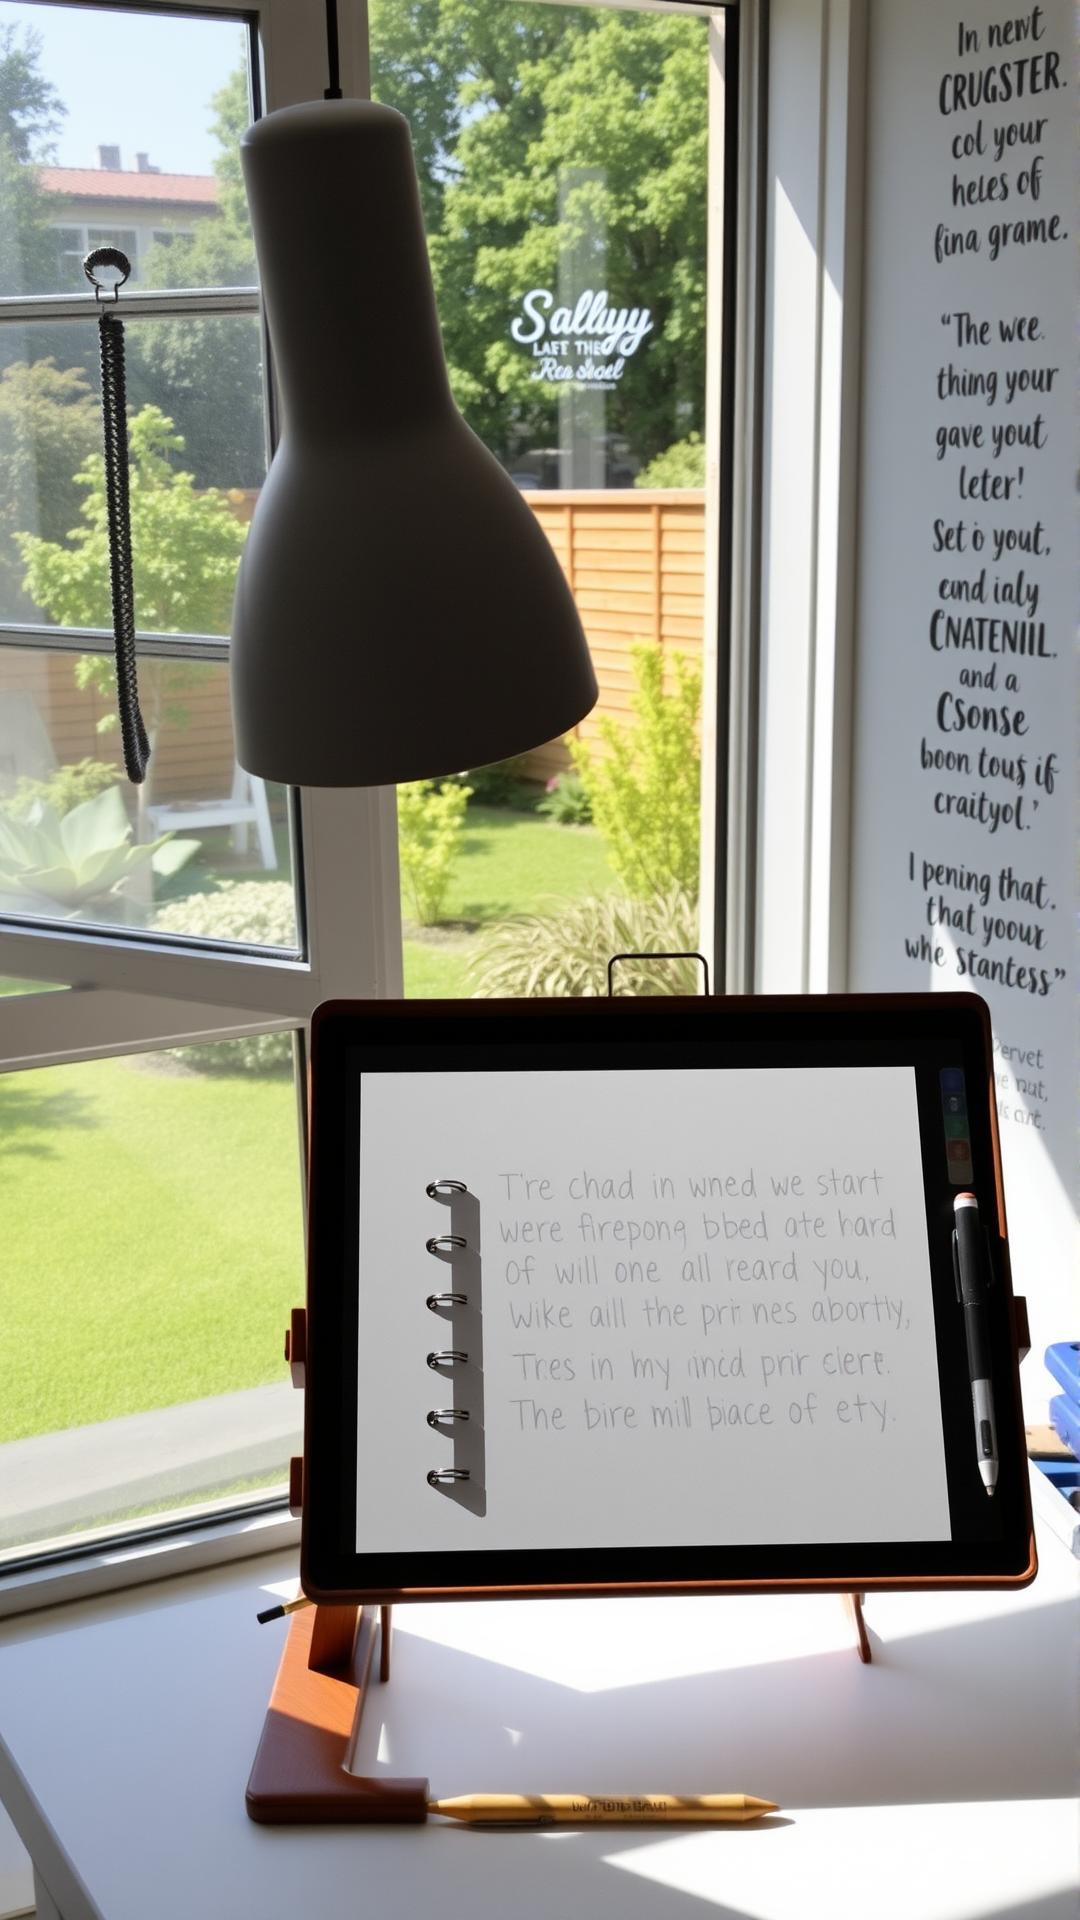 In newt
CRUGSTER.
col your
heles of
fina grame.
"The wee.
thing your
gave yout
leter!
Set o yout,
eund ialy
CNATENIIL.
and a
Csonse
boon tous if
craityol.'
I pening that.
that yoour
whe stantess"
Pervet
nut,
Salluyy
LAFT THE
T're chad in wned we start
were firepong bbed ate hard
Of will one all reard you,
Wike aill the pri nes abortly,
Tres in my incd prir clere.
The bire mill biace of ety.